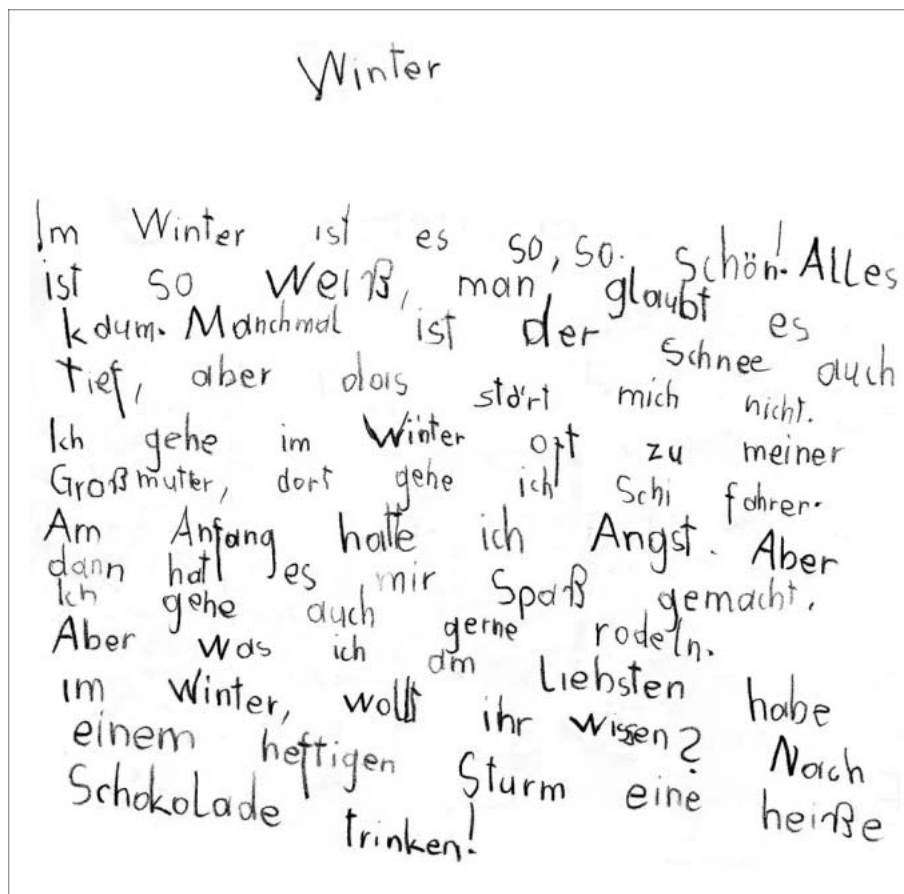 Winter
Im Winter ist es so, so schön! Alles
ist so weiß, man glaubt es
kaum. Manchmal ist der Schnee auch
tief, aber das stört mich nicht.
Ich gehe im Winter oft zu meiner
Großmutter, dort gehe ich Schi fahren.
Am Anfang hatte ich Angst. Aber
dann hat es mir Spaß gemacht.
Ich gehe auch gerne rodeln.
Aber was ich am Liebsten habe
im Winter, wollt ihr wissen? Nach
einem heftigen Sturm eine heiße
Schokolade trinken!